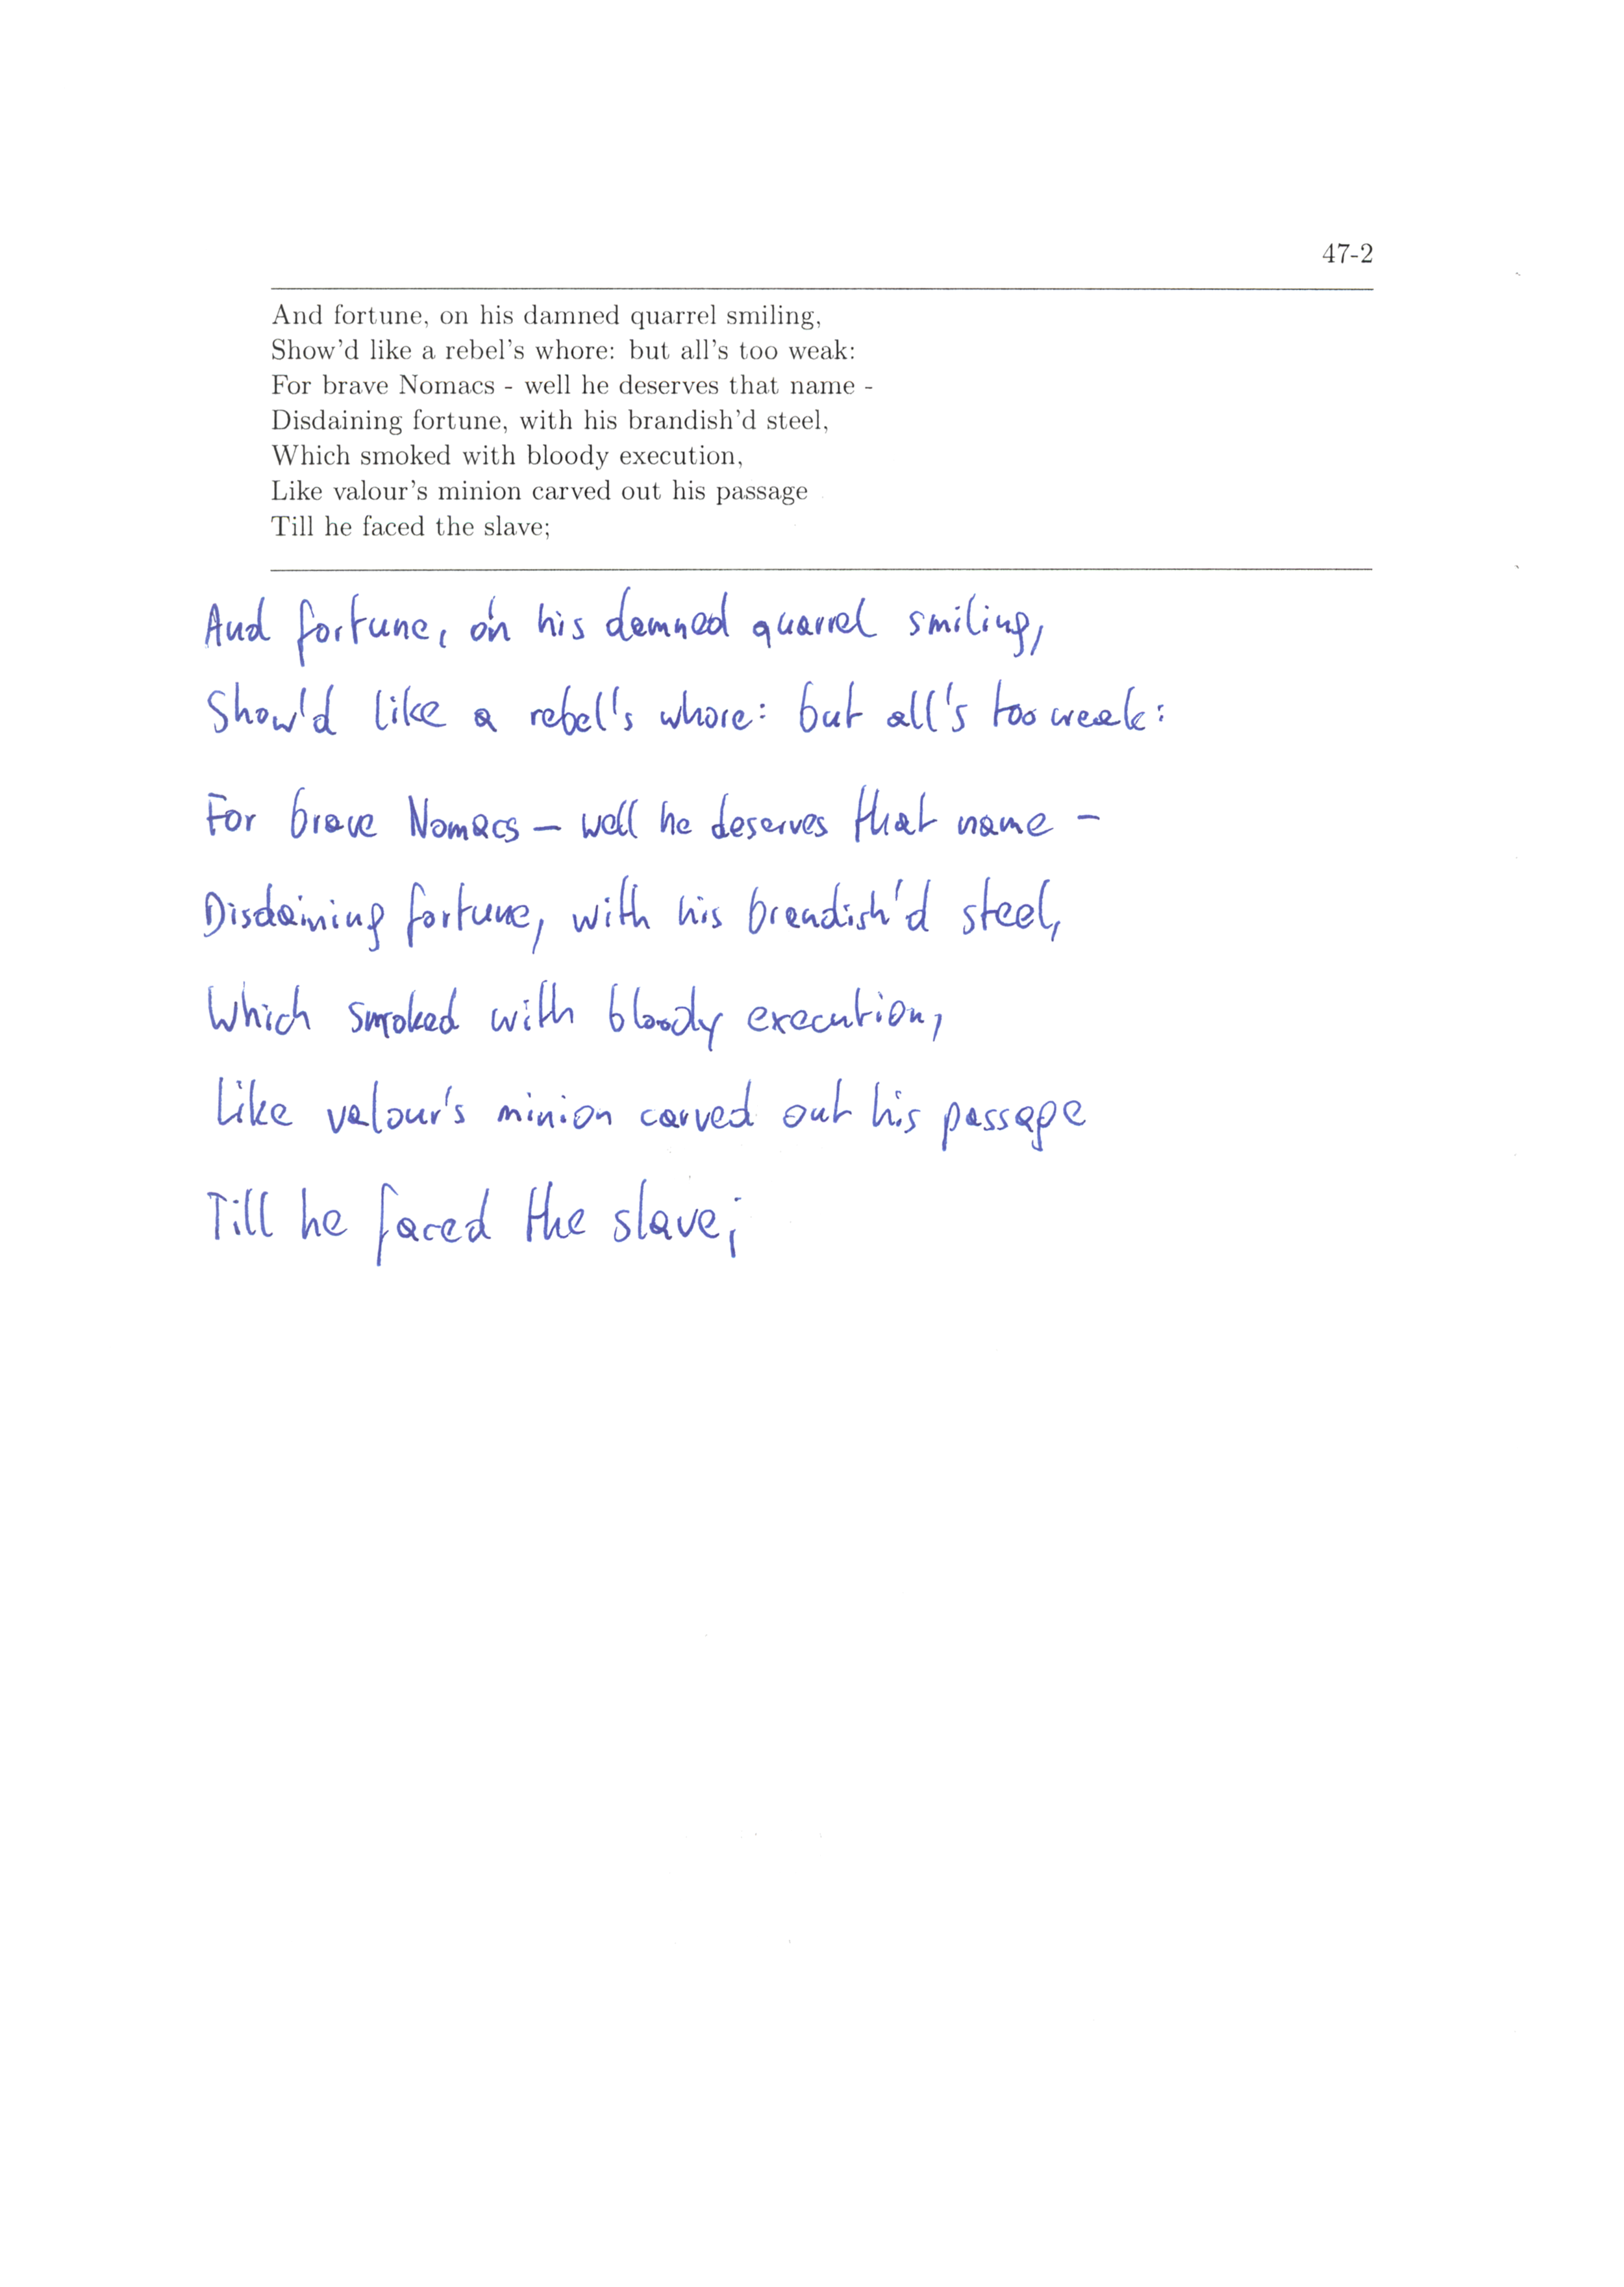 47-2
And fortune, on his damned quarrel smiling,
Show'd like a rebel's whore: but all's too weak:
For brave Nomacs - well he deserves that name -
Disdaining fortune, with his brandish'd steel,
Which smoked with bloody execution,
Like valour's minion carved out his passage
Till he faced the slave;
And fortune, on his damned quarrel smiling,
Show'd like a rebel's whore: but all's too weak:
For brave Nomacs – well he deserves that name –
Disdaining fortune, with his brandish'd steel,
Which smoked with bloody execution,
Like valour's minion carved out his passage
Till he faced the slave;